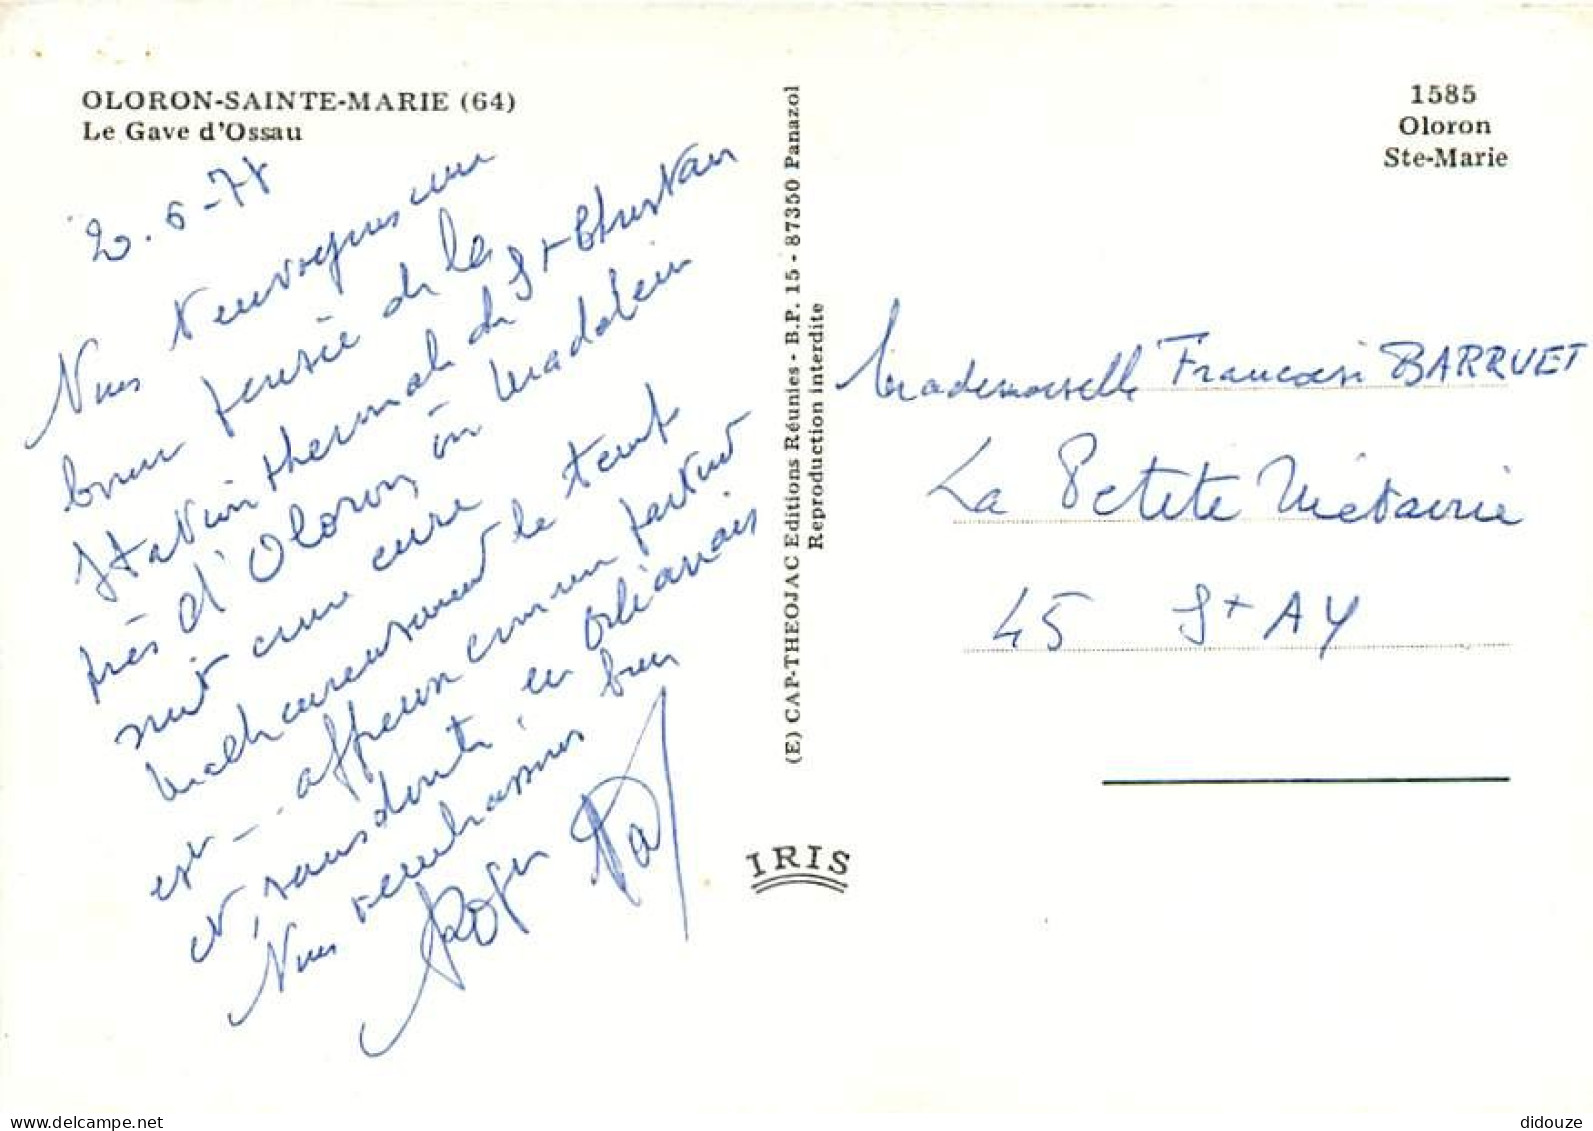 OLORON-SAINTE-MARIE (64)
Le Gave d'Ossau
1585
Oloron
Ste-Marie
2.6-77
Nous t'envoyons une
bonne pensée de la
station thermale de St Christau
près d'Oloron, où Madeleine
suit une cure
Malheureusement le temps
est - affreux comme partout
et, sans doute, en Orléanais
Nous t'embrassons bien
Roger
(E) CAP-THEOJAC Editions Réunies - B.P. 15 - 87350 Panazol
Reproduction interdite
IRIS
Mademoiselle Françoise BARRUET
La Petite Métairie
45 St AY
delcampe.net
didouze